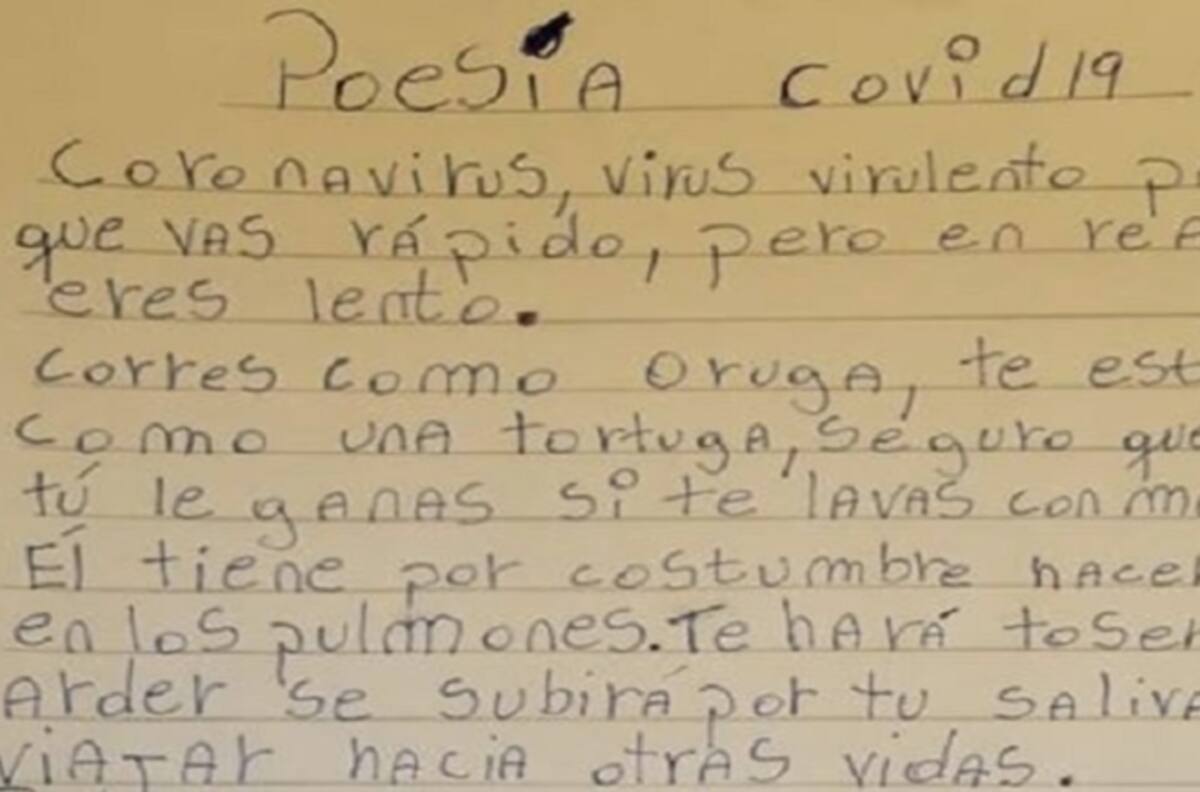 Poesía covid19
Coronavirus, virus virulento
que vas rápido, pero en
eres lento.
Corres como oruga, te
como una tortuga, seguro que
tú le ganas si te lavas con
Él tiene por costumbre
en los pulmones. Te hará toser
arder se subirá por tu saliva
viajar hacia otras vidas.